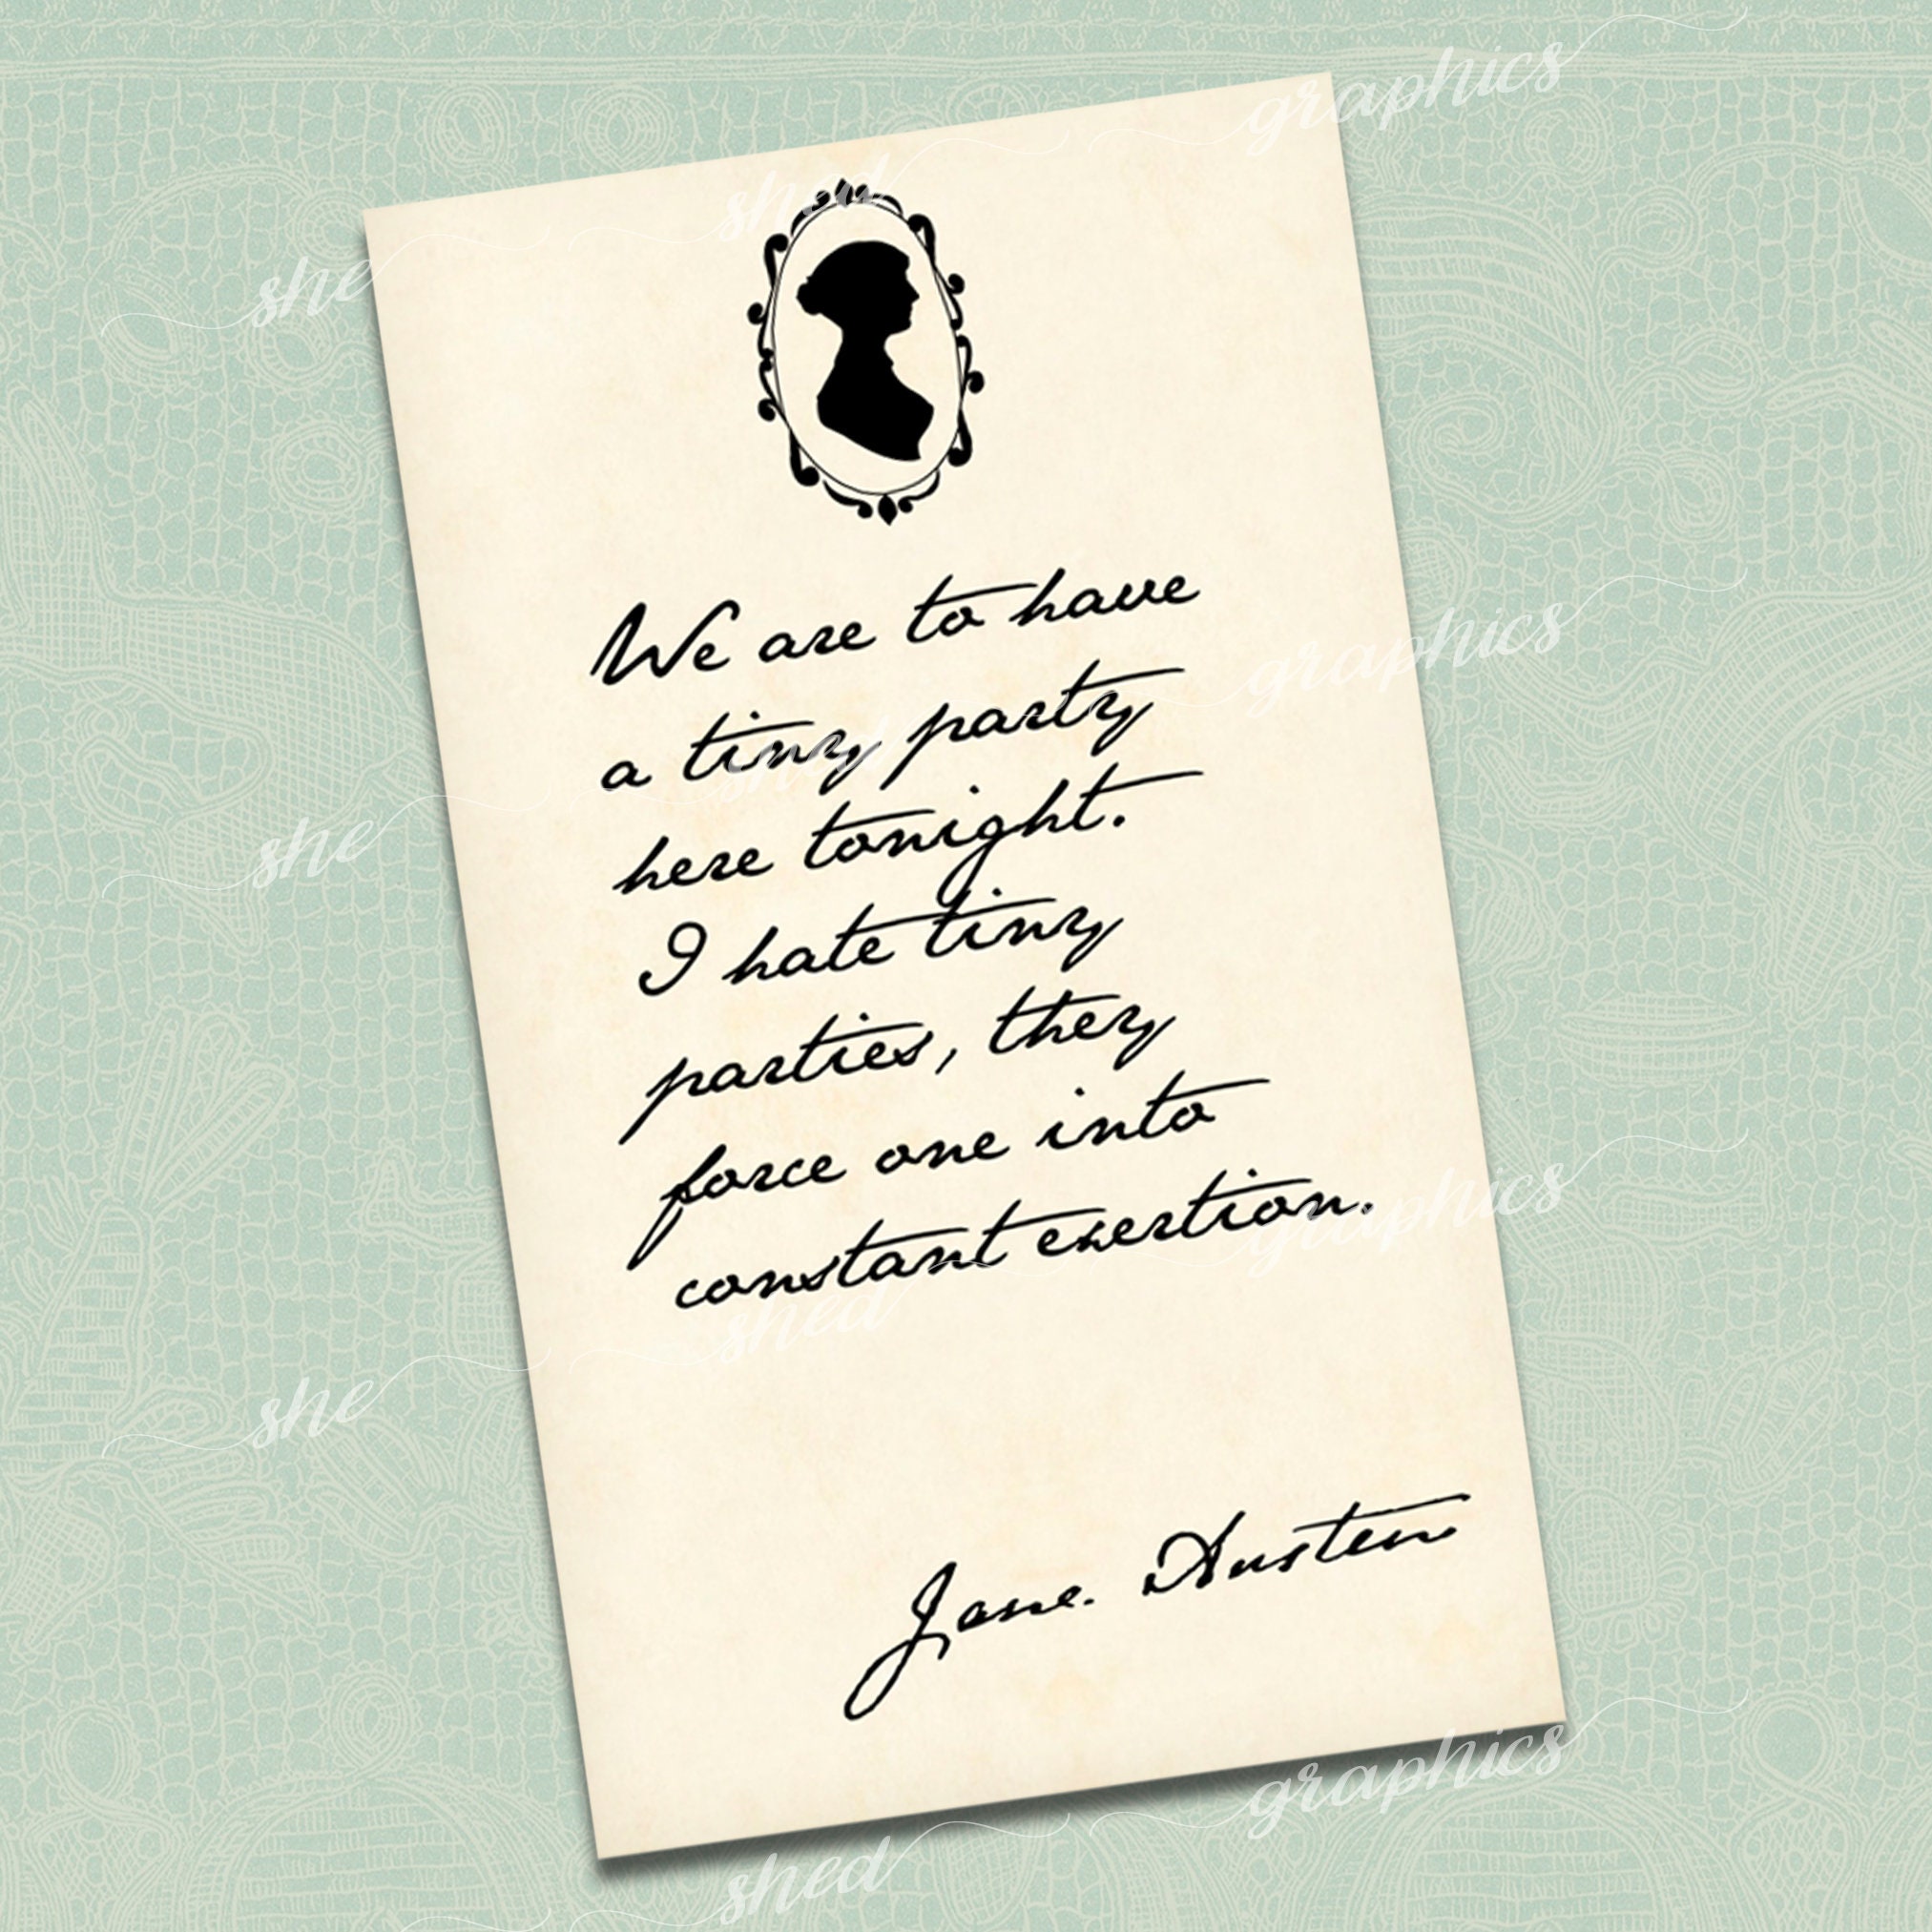 We are to have
a tiny party
here tonight.
I hate tiny
parties, they
force one into
constant exertion.
Jane. Austen
graphics
shed
she
graphics
shed
she
graphics
shed
she
graphics
shed